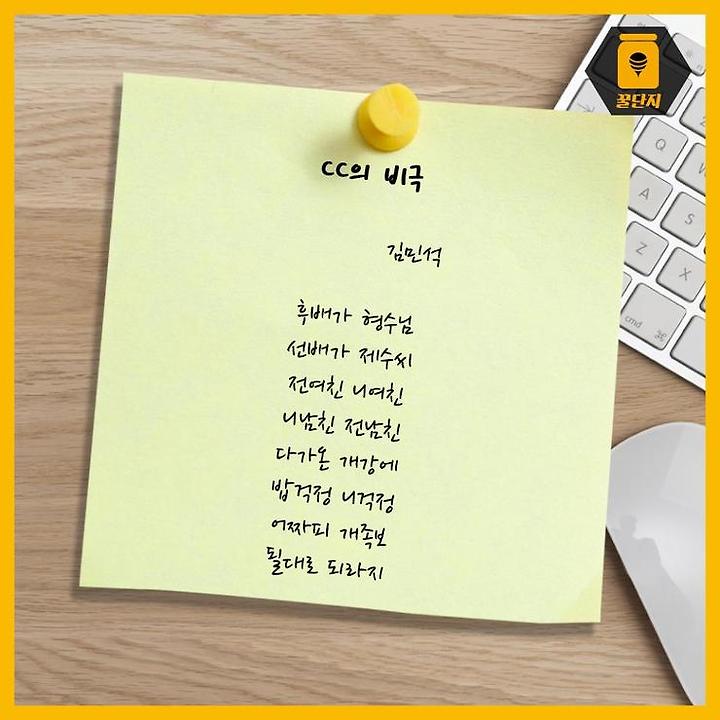 꿀단지
CC의 비극
김민석
후배가 형수님
선배가 제수씨
전여친 니여친
니남친 전남친
다가온 개강에
밥걱정 니걱정
어짜피 개족보
될대로 되라지
Q
W
A
S
Z
X
cmd ⌘